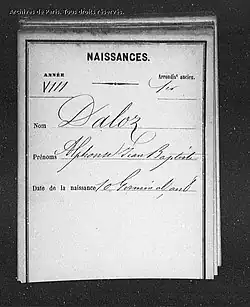 Archives de Paris. Tous droits réservés.
NAISSANCES.
ANNÉE Arrondis^t ancien.
VIII
Nom Daloz
Prénoms Alphonse Jean Baptiste
Date de la naissance 10 Germinal an 8